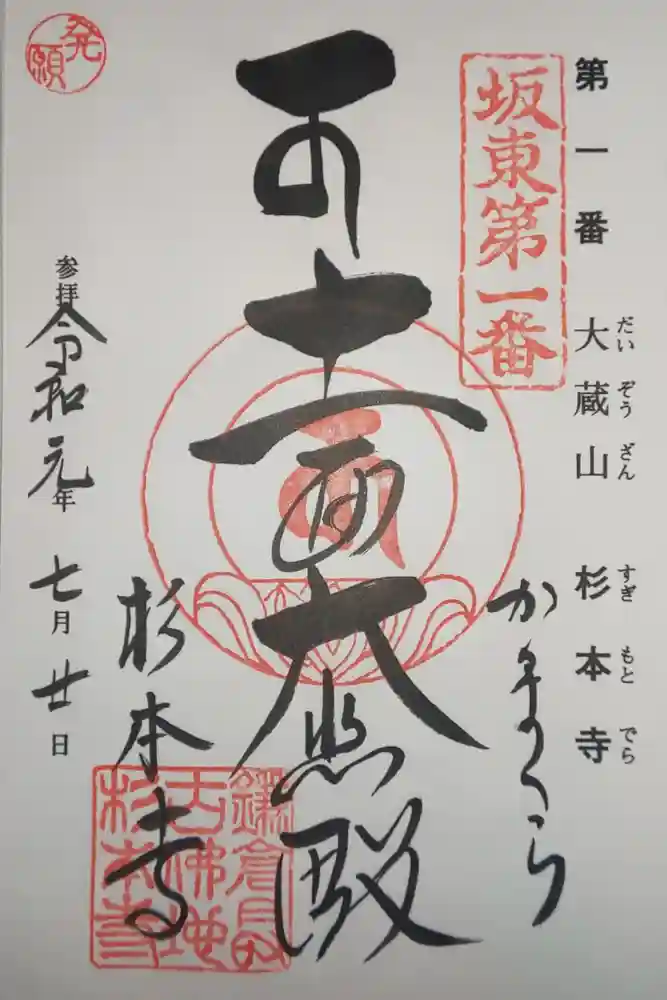 第一番 大蔵山 杉本寺
だいぞうざん すぎもとでら
坂東第一番
かまくら
十一面大悲殿
杉本寺
鎌倉最
古佛地
杉本寺
発願
参拝 令和元年七月廿日